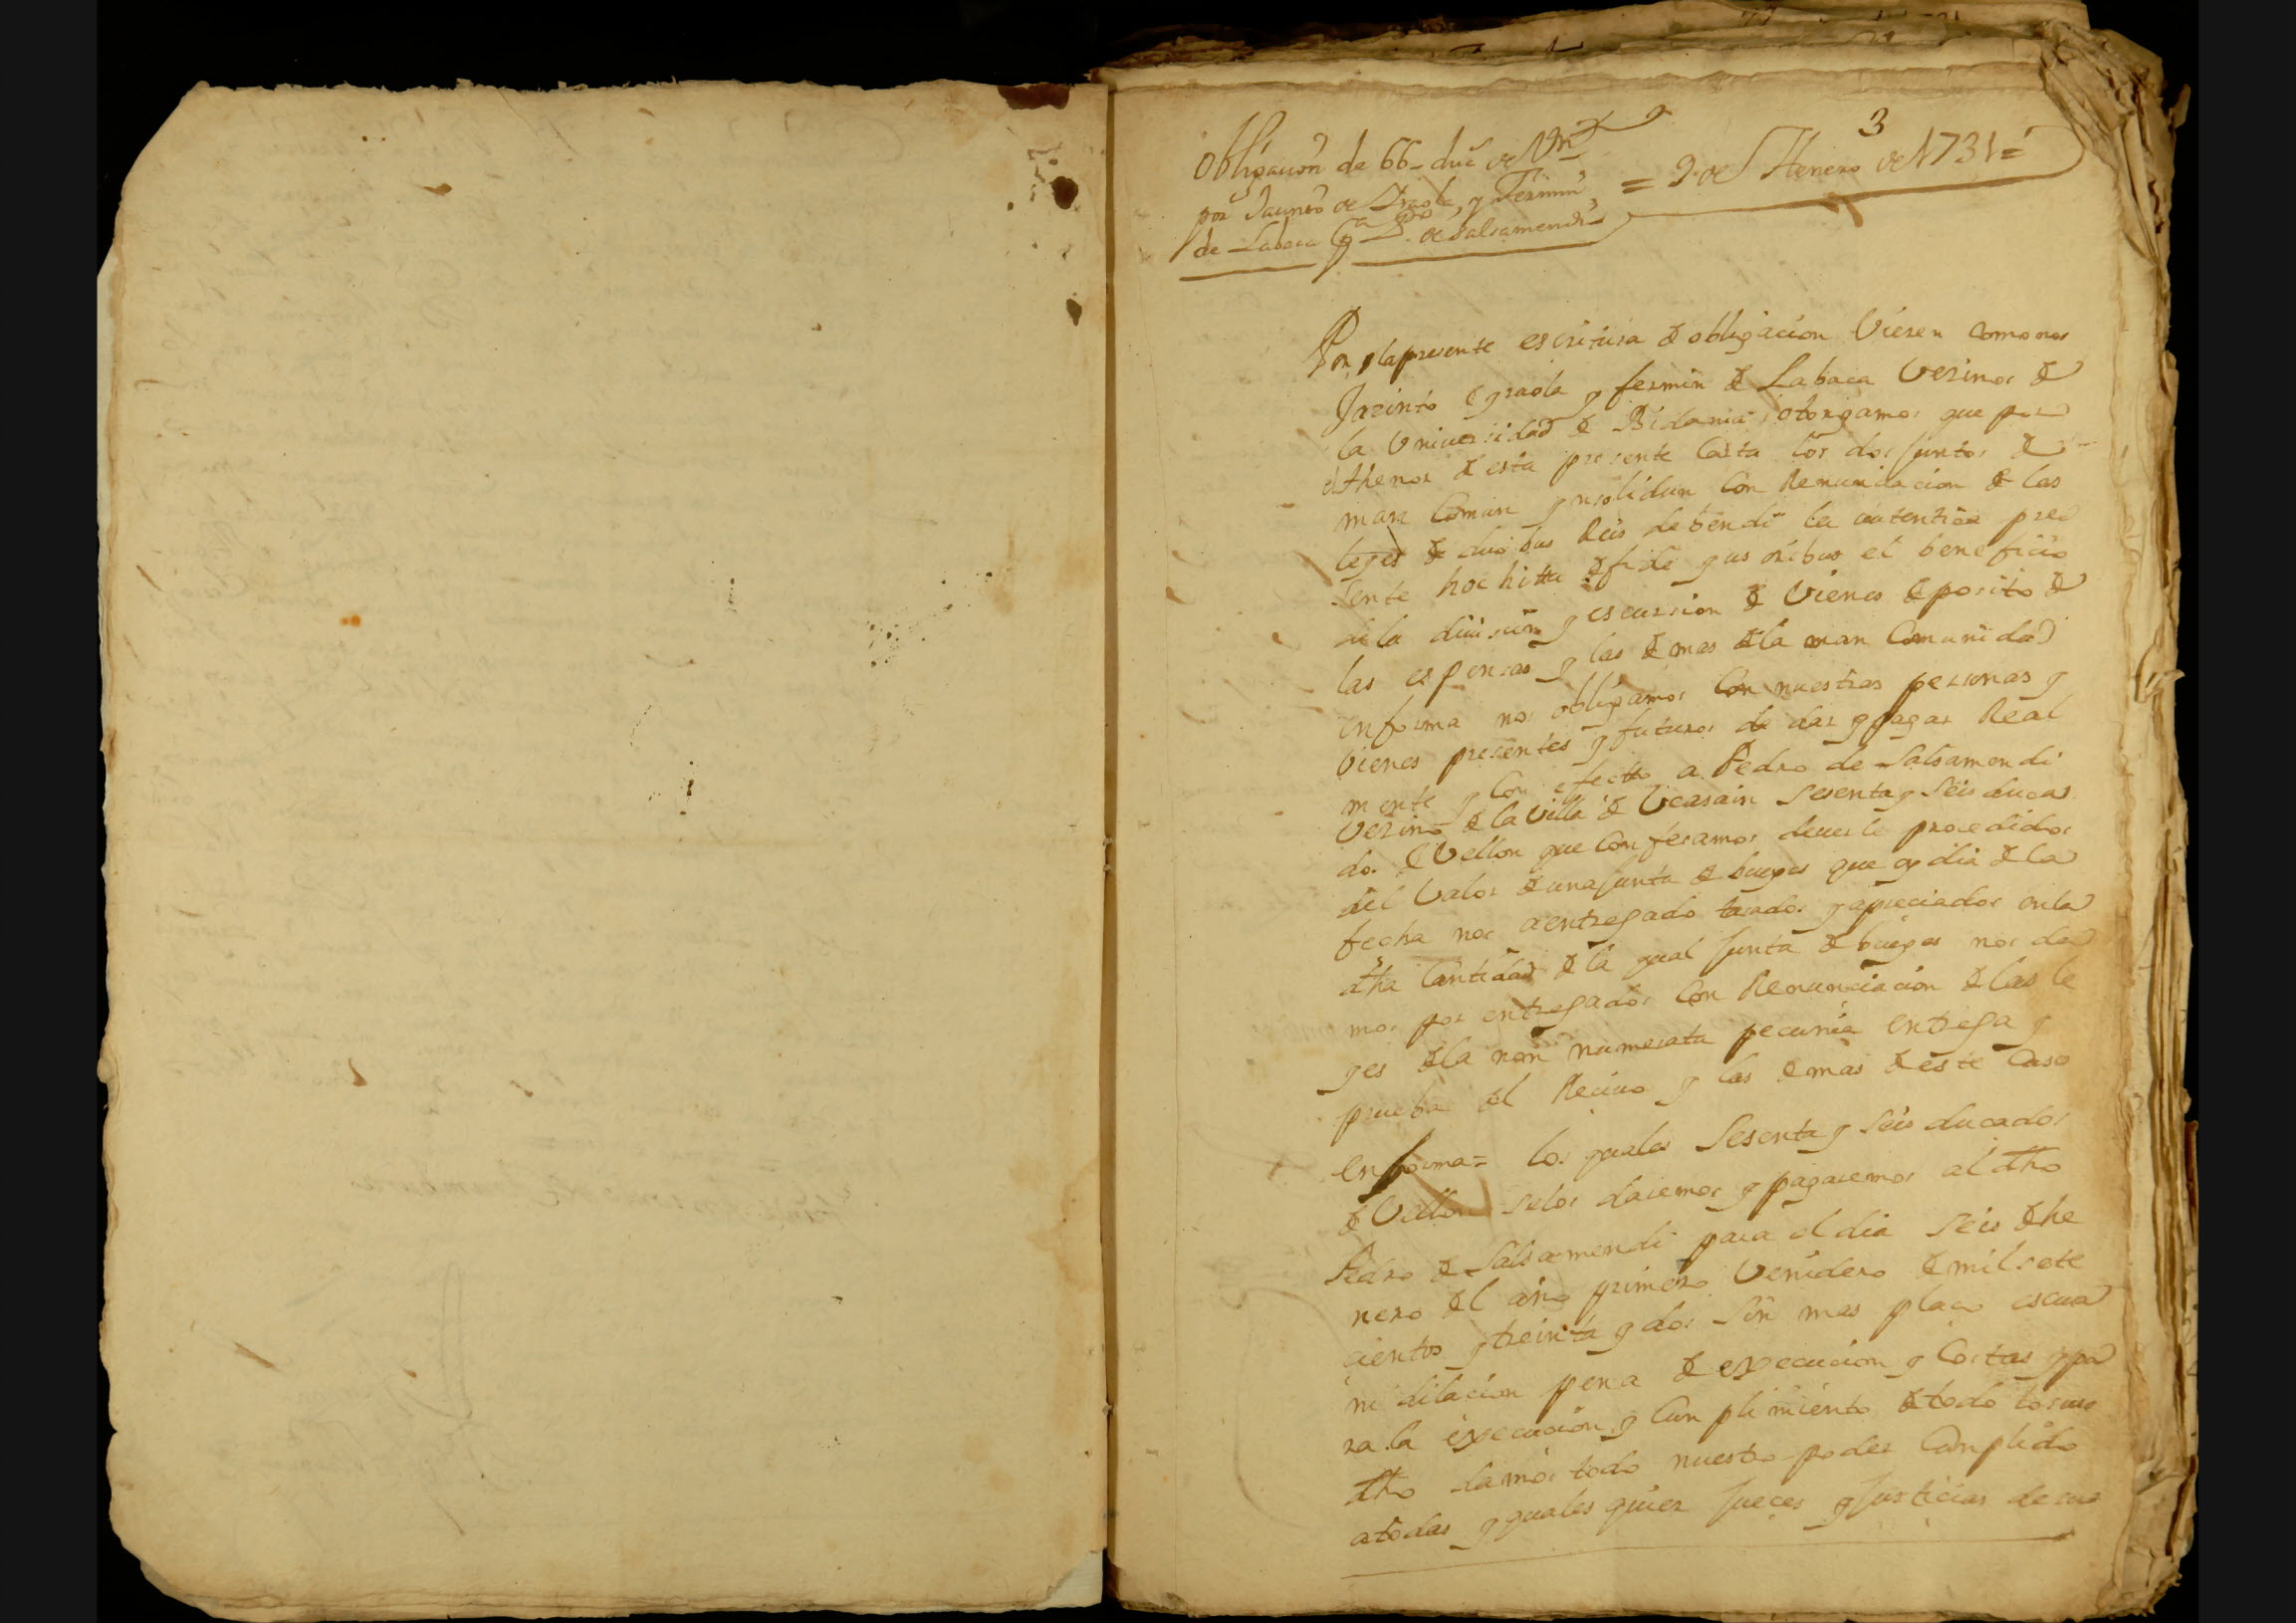 3
Obligacion de 66 duc de Vn
por Jacinto de Yraola, y Fermin
de Labaca Cª Pº de Salsamendi
= 9 de Henero de 1731 =
Por la presente escritura de obligacion Vieren como nos
Jazinto Yraola y fermin de Labaca Vezinos de
la Vniversidad de Bidania, otorgamos que por
el thenor de esta presente Carta los dos Juntos de
man Comun ynsolidun Con Renunciacion de las
leyes de duobus Reis debendi la autentica pre
sente hoc hitta de fide yusoribus el beneficio
de la diuision y escursion de Vienes deposito de
las espensas y las demas de la man Comunidad
en forma nos obligamos Con nuestras personas y
Vienes presentes y futuros de dar y pagar Real
mente y Con efecto a Pedro de Salsamendi
Vezino de la Villa de Veasain Sesenta y Seis duca
dos de Vellon que Confesamos deuerle procedidos
del Valor de una Junta de bueyes que oy dia de la
fecha nos a entregado tasados y apreciados en la
dha Cantidad de la qual Junta de bueyes nos da
mos por entregados Con Renunciacion de las le
yes de la non numerata pecunia entrega y
prueba del Reciuo y las demas de este Caso
en forma = los quales Sesenta y Seis ducados
de Vellon selos daremos y pagaremos al dho
Pedro de Salsamendi para el dia Seis de he
nero del año primero Venidero de mil sete
cientos y treinta y dos Sin mas plaço escusa
ni dilacion pena de execucion y Costas y pa
ra la execucion y Cunplimiento de todo lo suso
dho damos todo nuestro poder Cumplido
a todas y quales quier Jueces y Justicias de su